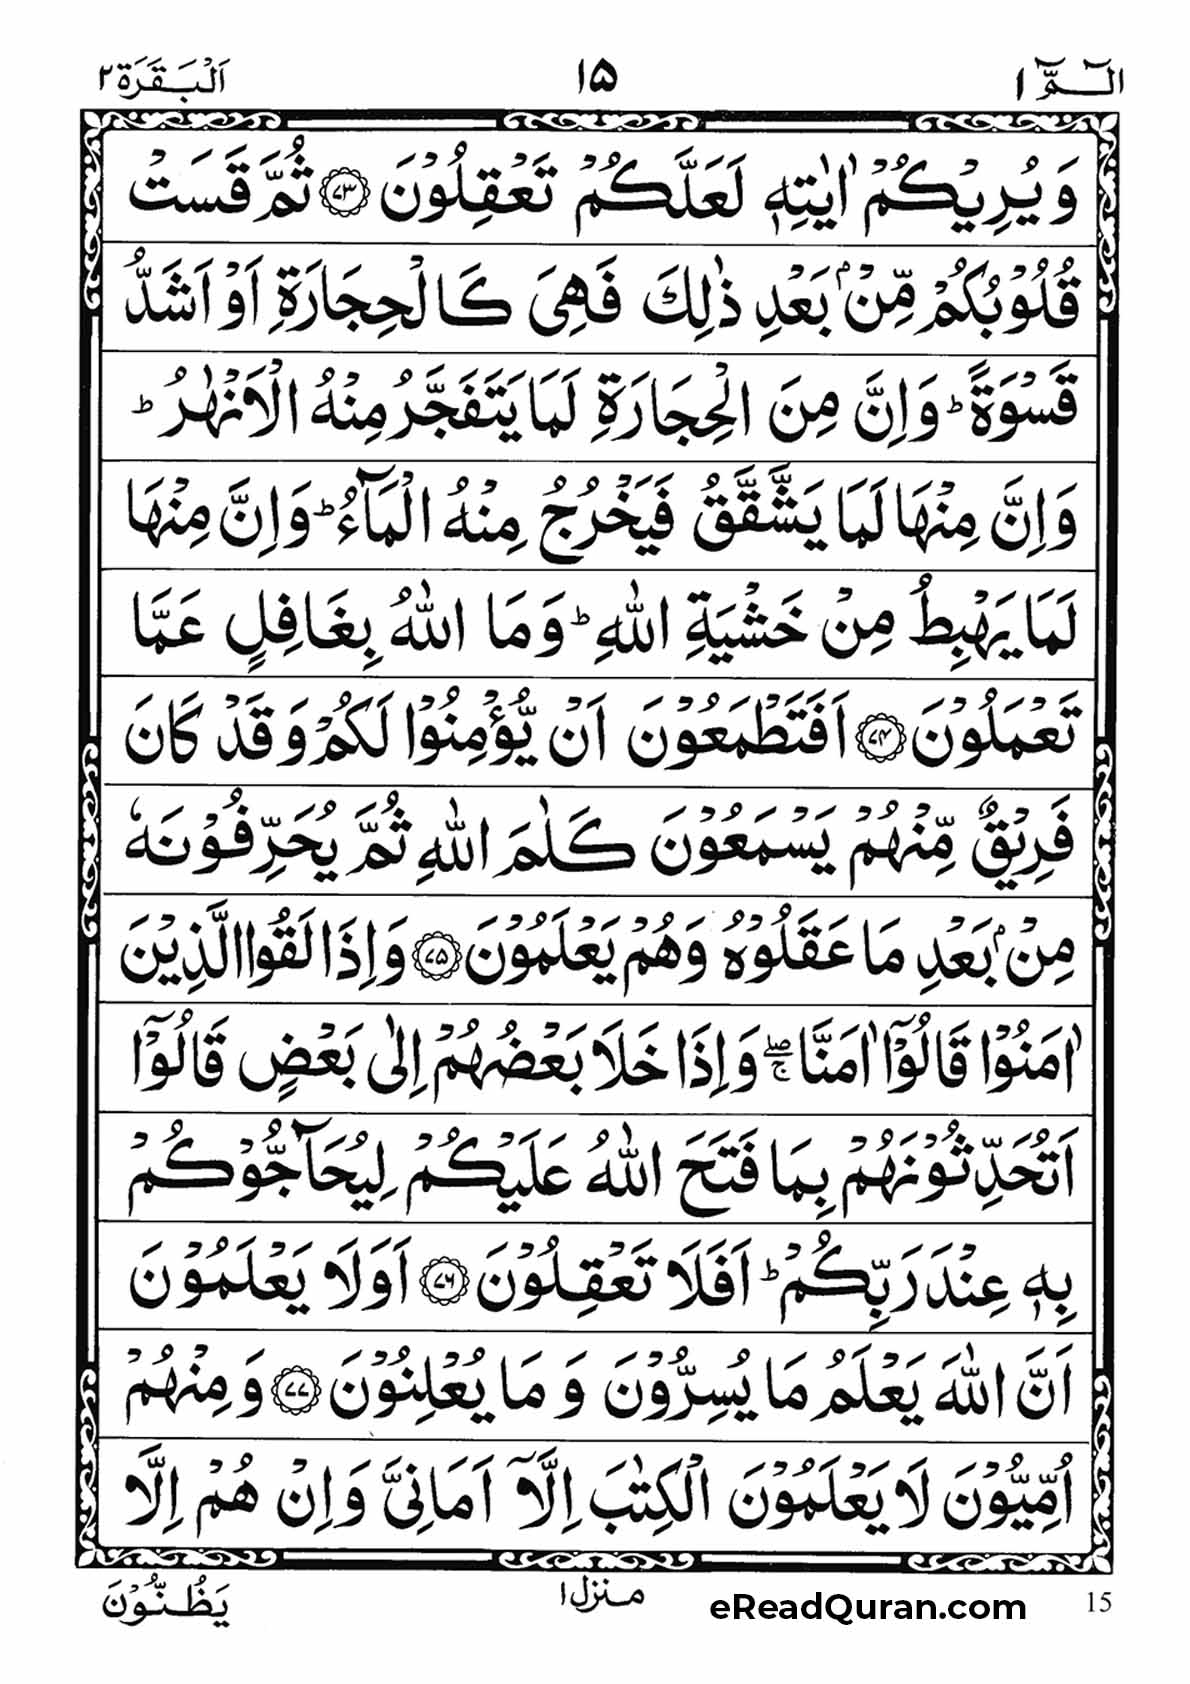 الٓمّٓ ۱ ۱۵ اَلْبَقَرَة ۲
وَيُرِيْكُمْ اٰيٰتِهٖ لَعَلَّكُمْ تَعْقِلُوْنَ ﴿۷۳﴾ ثُمَّ قَسَتْ
قُلُوْبُكُمْ مِّنْۢ بَعْدِ ذٰلِكَ فَهِىَ كَالْحِجَارَةِ اَوْ اَشَدُّ
قَسْوَةً ؕ وَاِنَّ مِنَ الْحِجَارَةِ لَمَا يَتَفَجَّرُ مِنْهُ الْاَنْهٰرُ ؕ
وَاِنَّ مِنْهَا لَمَا يَشَّقَّقُ فَيَخْرُجُ مِنْهُ الْمَآءُ ؕ وَاِنَّ مِنْهَا
لَمَا يَهْبِطُ مِنْ خَشْيَةِ اللّٰهِ ؕ وَمَا اللّٰهُ بِغَافِلٍ عَمَّا
تَعْمَلُوْنَ ﴿۷۴﴾ اَفَتَطْمَعُوْنَ اَنْ يُّؤْمِنُوْا لَكُمْ وَقَدْ كَانَ
فَرِيْقٌ مِّنْهُمْ يَسْمَعُوْنَ كَلٰمَ اللّٰهِ ثُمَّ يُحَرِّفُوْنَهٗ
مِنْۢ بَعْدِ مَا عَقَلُوْهُ وَهُمْ يَعْلَمُوْنَ ﴿۷۵﴾ وَاِذَا لَقُوا الَّذِيْنَ
اٰمَنُوْا قَالُوْٓا اٰمَنَّا ۖۚ وَاِذَا خَلَا بَعْضُهُمْ اِلٰى بَعْضٍ قَالُوْٓا
اَتُحَدِّثُوْنَهُمْ بِمَا فَتَحَ اللّٰهُ عَلَيْكُمْ لِيُحَآجُّوْكُمْ
بِهٖ عِنْدَ رَبِّكُمْ ؕ اَفَلَا تَعْقِلُوْنَ ﴿۷۶﴾ اَوَلَا يَعْلَمُوْنَ
اَنَّ اللّٰهَ يَعْلَمُ مَا يُسِرُّوْنَ وَمَا يُعْلِنُوْنَ ﴿۷۷﴾ وَمِنْهُمْ
اُمِّيُّوْنَ لَا يَعْلَمُوْنَ الْكِتٰبَ اِلَّآ اَمَانِىَّ وَاِنْ هُمْ اِلَّا
يَظُنُّوْنَ
منزل ۱
eReadQuran.com
15